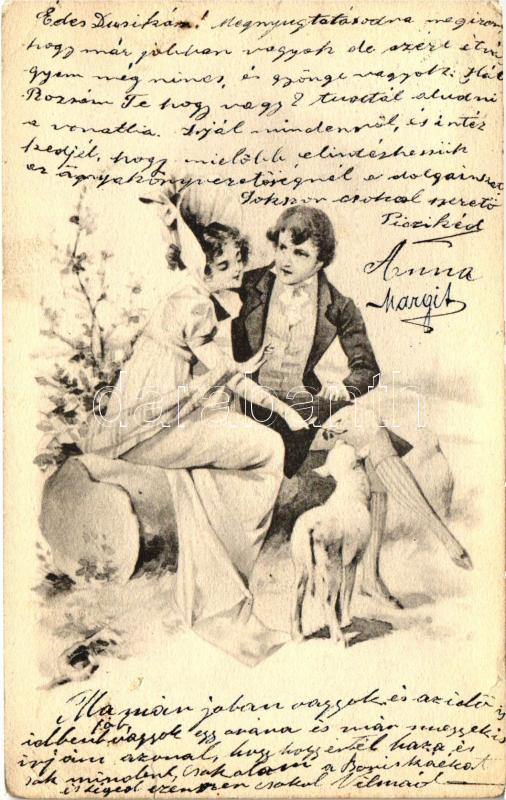 Édes Dusikám! Megnyugtatásodra megirom
hogy már jobban vagyok de azért étvá
gyam még nincs, és gyönge vagyok. Hát
Rózsám Te hogy vagy? tudtál aludni
a vonatba. Irjál mindenről, és intéz
kedjél, hogy mielőbb elintézhessük
az anyakönyvvezetőségnél a dolgainkat
Sokszor csókol szerető
Piczikéd
Anna
Margit
darabanth
Ma már jobban vagyok és az idő is
jób
vagyok egy órána és már megyek is
irjám, azonal, hogy hogy haza, és
sok mindent, csókolom a Boriskáékat
is téged ezerszer csókol Vilmád